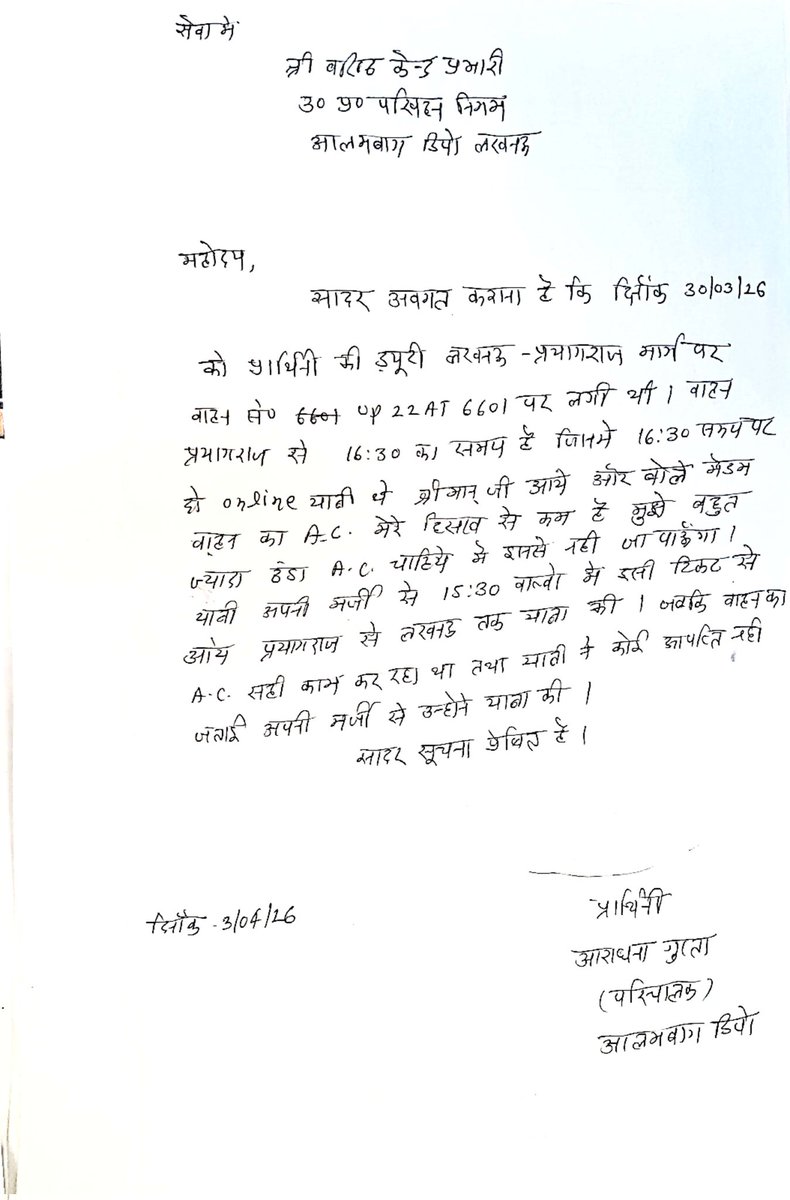 सेवा में
श्री वरिष्ठ केन्द्र प्रभारी
उ० प्र० परिवहन निगम
आलमबाग डिपो लखनऊ
महोदय,
सादर अवगत कराना है कि दिनांक 30/03/26
को प्रार्थिनी की ड्यूटी लखनऊ - प्रयागराज मार्ग पर
वाहन सं० 6601 UP 22 AT 6601 पर लगी थी । वाहन
प्रयागराज से 16:30 का समय है जिसमे 16:30 समय पर
दो online यात्री थे श्रीमान् जी आये और बोले मैडम
वाहन का A.C. मेरे हिसाब से कम है मुझे बहुत
ज्यादा ठंडा A.C. चाहिये मै इससे नही जा पाऊँगा ।
यात्री अपनी मर्जी से 15:30 वाली मे इसी टिकट से
आये प्रयागराज से लखनऊ तक यात्रा की । जबकि वाहन का
A.C. सही काम कर रहा था तथा यात्री ने कोई आपत्ति नही
जताई अपनी मर्जी से उन्होने यात्रा की ।
सादर सूचना प्रेषित है ।
दिनाँक - 3/04/26
प्रार्थिनी
आराधना गुप्ता
(परिचालक)
आलमबाग डिपो